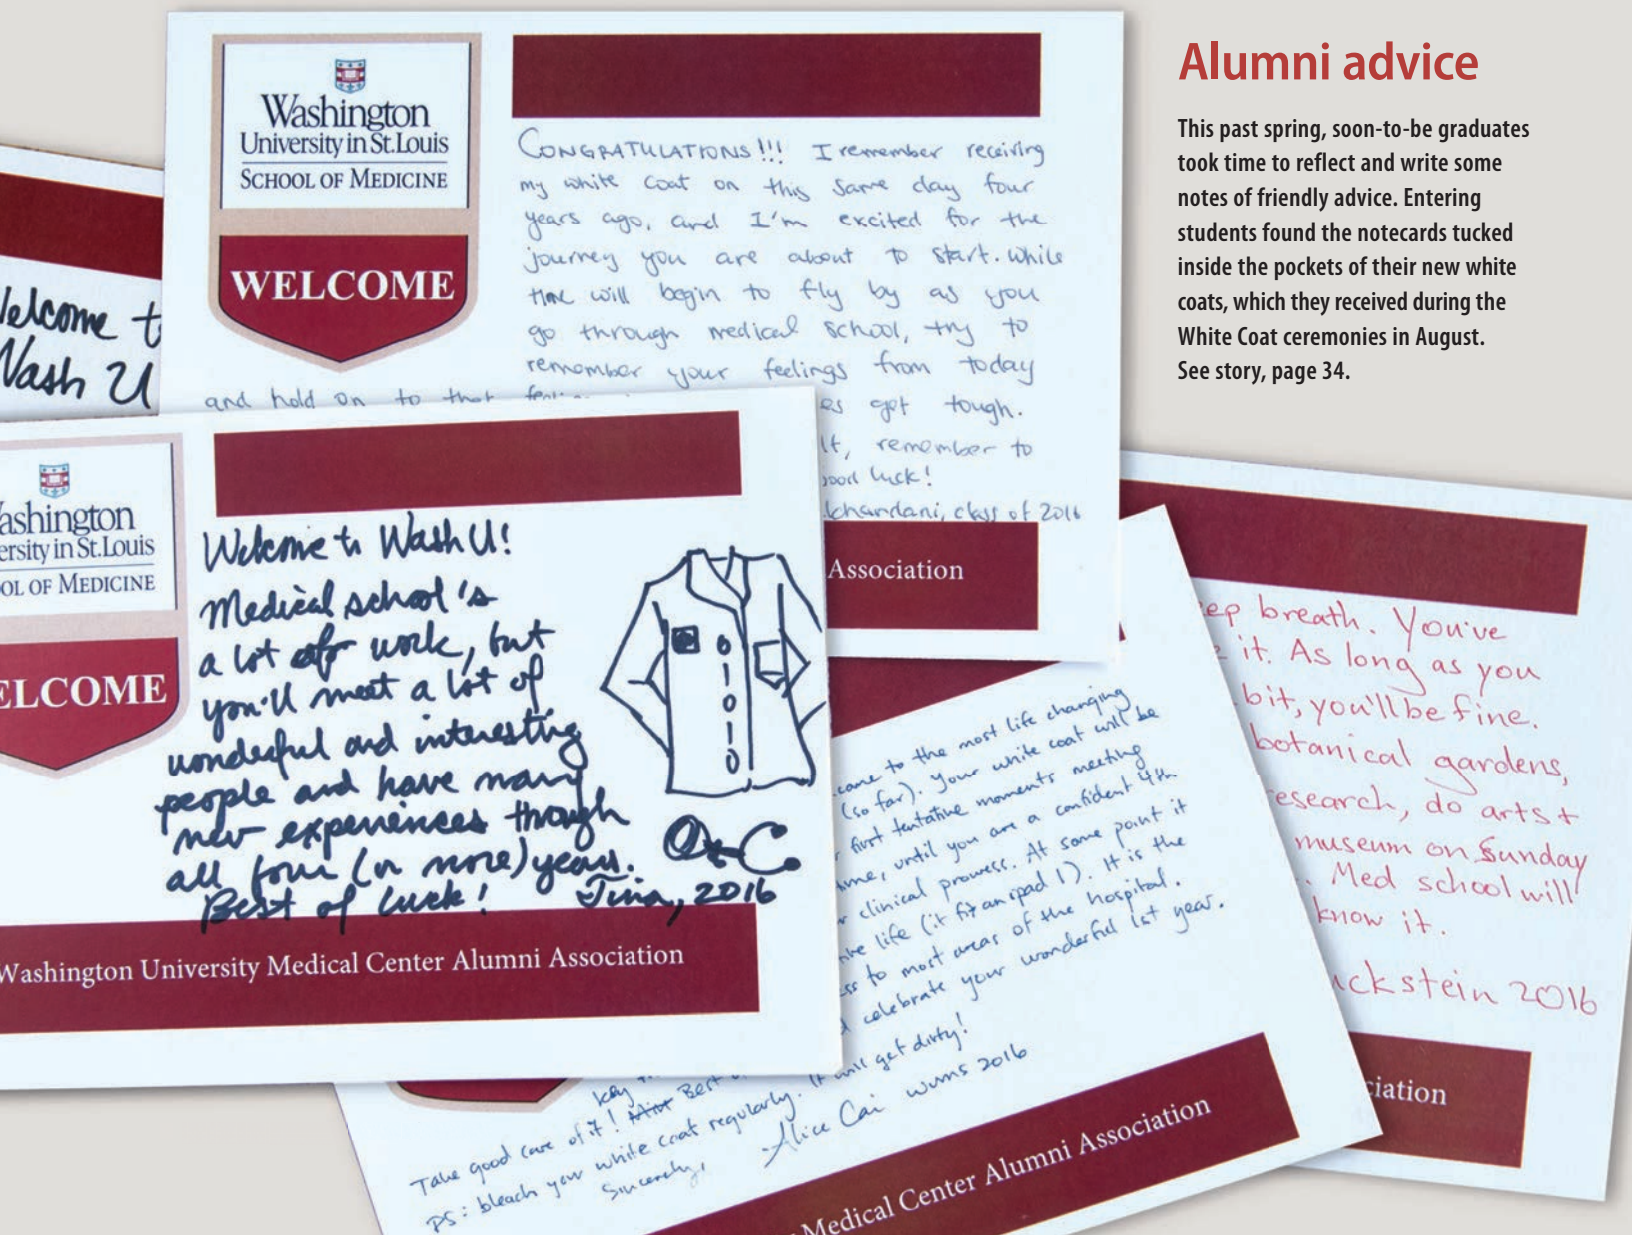 Alumni advice
This past spring, soon-to-be graduates
took time to reflect and write some
notes of friendly advice. Entering
students found the notecards tucked
inside the pockets of their new white
coats, which they received during the
White Coat ceremonies in August.
See story, page 34.
Washington
University in St. Louis
SCHOOL OF MEDICINE
WELCOME
CONGRATULATIONS!!! I remember receiving
my white coat on this same day four
years ago, and I'm excited for the
journey you are about to start. While
time will begin to fly by as you
go through medical school, try to
remember your feelings from today
and hold on to that
get tough.
remember to
luck!
class of 2016
Association
Welcome
Wash U
ashington
ersity in St. Louis
OL OF MEDICINE
ELCOME
Welcome to Wash U!
Medical school's
a lot of work, but
you'll meet a lot of
wonderful and interesting
people and have many
new experiences through
all four (or more) years.
Best of luck! Tina, 2016
Washington University Medical Center Alumni Association
come to the most life changing
(so far). Your white coat will be
first tentative moments meeting
time, until you are a confident 4th
clinical prowess. At some point it
life (it fit an ipad 1). It is the
to most areas of the hospital.
celebrate your wonderful 1st year.
key
Take good care of it! Best
PS: bleach your white coat regularly. It will get dirty!
Sincerely,
Alice Cai WUMS 2016
Medical Center Alumni Association
ep breath. You've
it. As long as you
bit, you'll be fine.
botanical gardens,
esearch, do arts +
museum on Sunday
Med school will
know it.
uckstein 2016
ciation